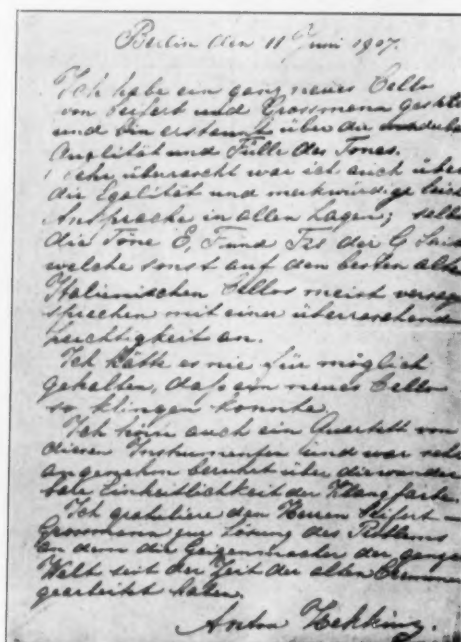 Berlin den 11ten Juni 1907.
Ich habe ein ganz neues Cello
von Seifert und Grossmann
und bin erstaunt über die
Qualität und Fülle des Tones.
Sehr überrascht war ich auch über
die Egalität und merkwürdige
Ansprache in allen Lagen;
die Töne E, F und Fis der G
welche sonst auf den besten
Italienischen Cellos meist
sprechen mit einer
Leichtigkeit an.
Ich hätte es nie für möglich
gehalten, dass ein neues Cello
so klingen konnte.
Ich hörte auch ein Quartett von
diesen Instrumenten und war
angenehm berührt über die wunder
bare Einheitlichkeit der Klangfarbe.
Ich gratuliere den Herren Seifert –
Grossmann zur Lösung des Problems
an dem die Geigenmacher der ganzen
Welt seit der Zeit der alten
gearbeitet haben.
Anton Hekking.